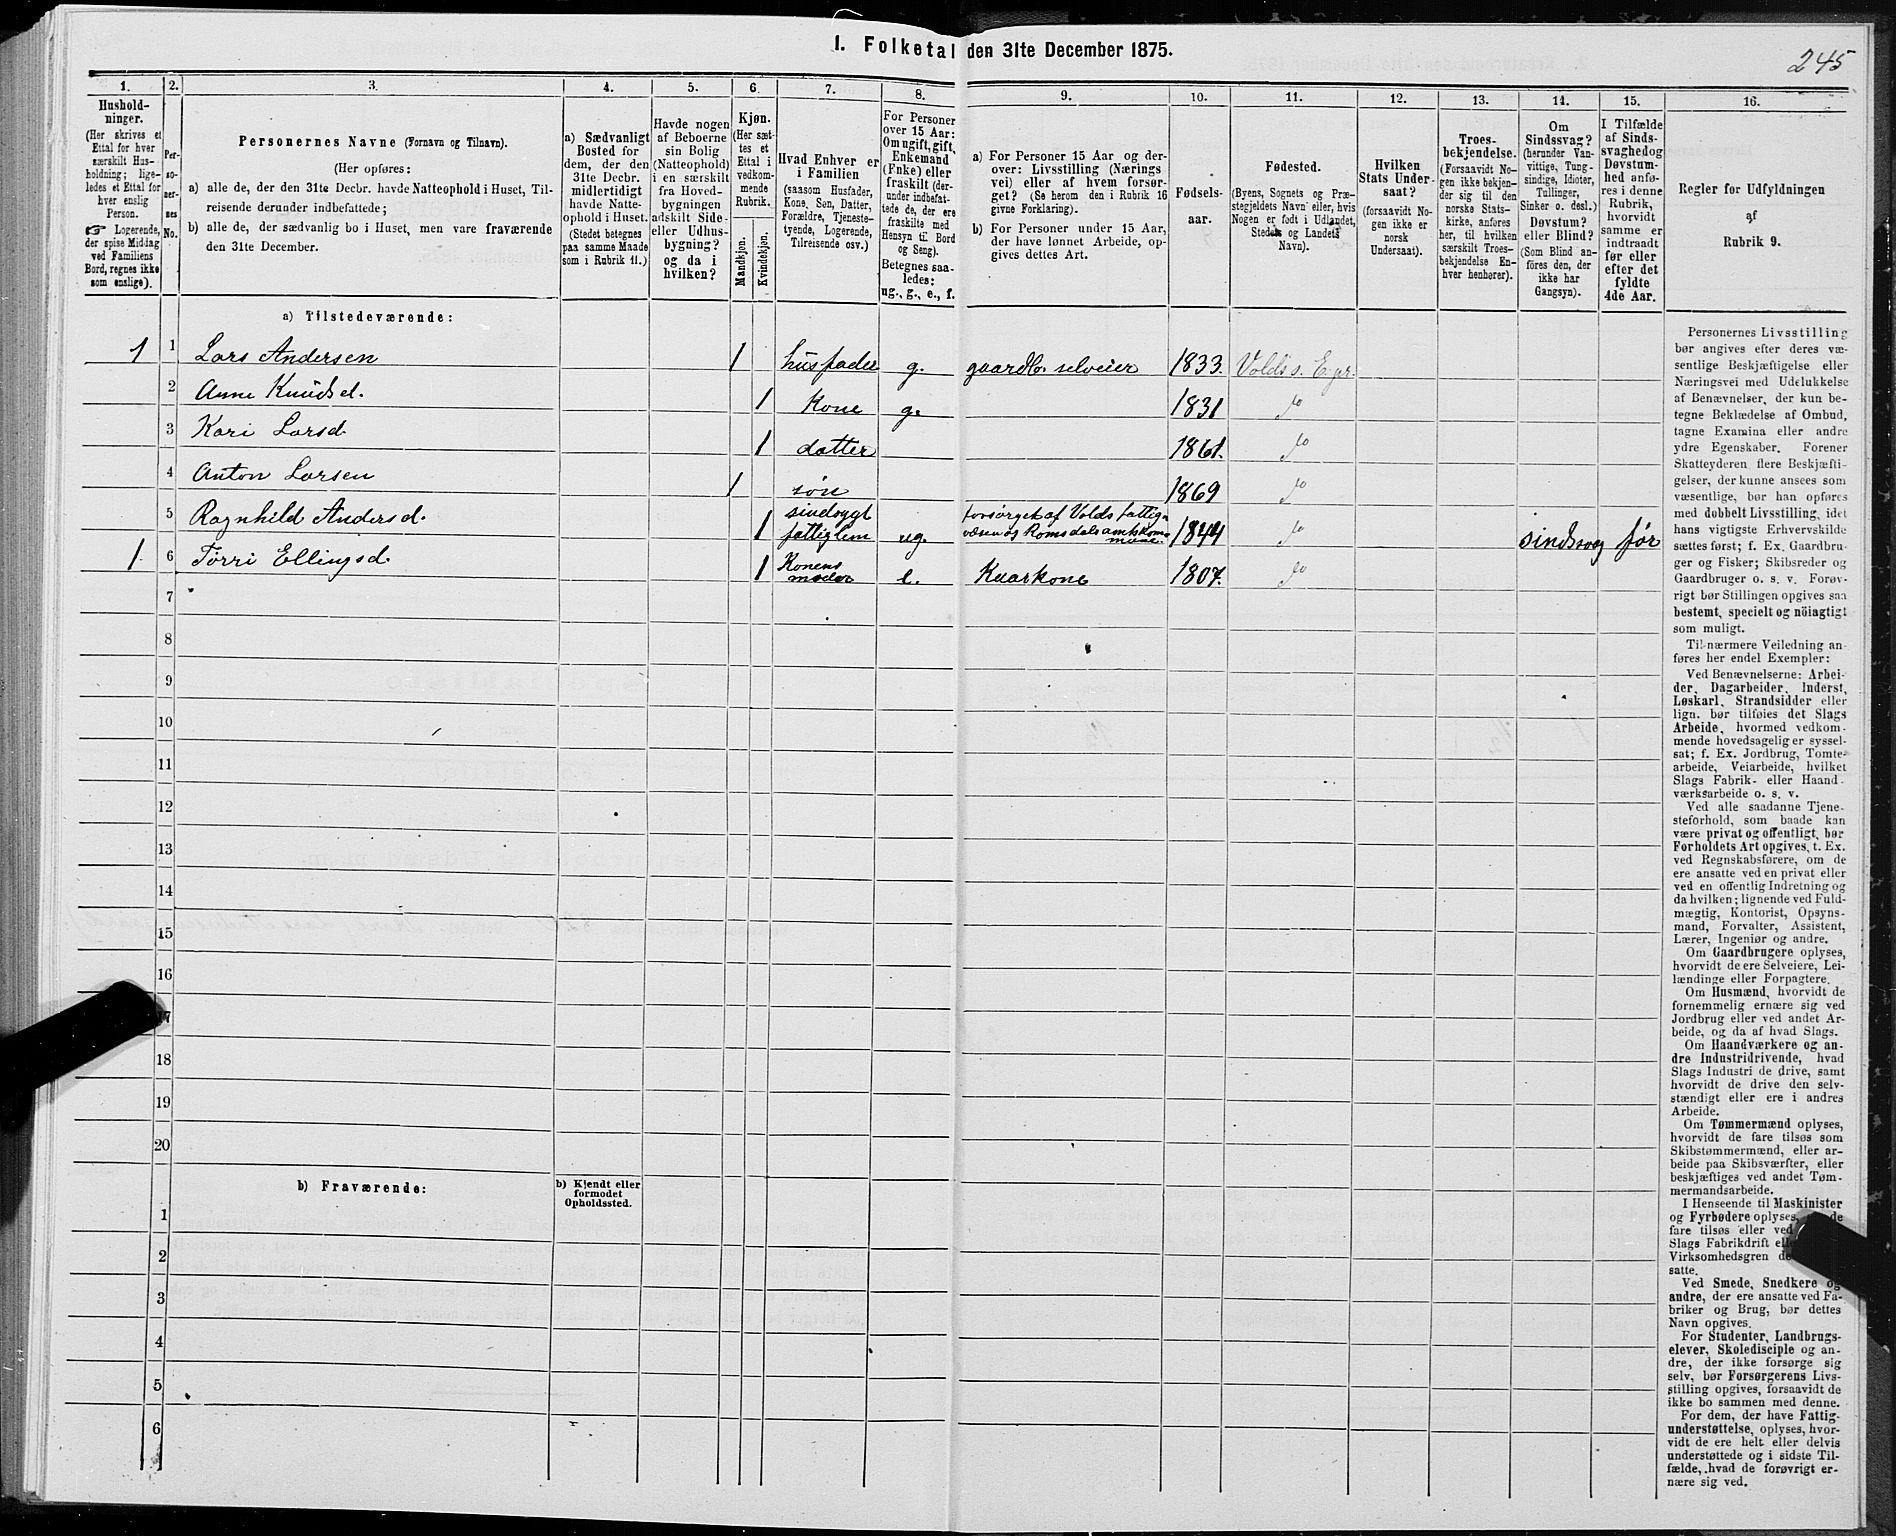 I. Folketal den 31te December 1875.
245
1.
Hushold-
ninger.
(Her skrives et
Ettal for hver
særskilt Hus-
holdning; lige-
ledes et Ettal for
hver enslig
Person.
Logerende,
der spise Middag
ved Familiens
Bord, regnes ikke
som enslige).
2.
Per-
so-
ner-
nes
No.
3.
Personernes Navne (Fornavn og Tilnavn).
(Her opføres:
a) alle de, der den 31te Decbr. havde Natteophold i Huset, Til-
reisende derunder indbefattede;
b) alle de, der sædvanlig bo i Huset, men vare fraværende
den 31te December.
4.
a) Sædvanligt
Bosted for
dem, der den
31te Decbr.
midlertidigt
havde Natte-
ophold i Huset.
(Stedet betegnes
paa samme Maade
som i Rubrik 11.)
5.
Havde nogen
af Beboerne
sin Bolig
(Natteophold)
i en særskilt
fra Hoved-
bygningen
adskilt Side-
eller Udhus-
bygning?
og da i
hvilken?
6.
Kjøn.
(Her sæt-
tes et
Ettal i
vedkom-
mende
Rubrik.
Mandkjøn.
Kvindekjøn.
7.
Hvad Enhver er
i Familien
(saasom Husfader,
Kone, Søn, Datter,
Forældre, Tjeneste-
tyende, Logerende,
Tilreisende osv.)
8.
For Personer
over 15 Aar:
Om ugift, gift,
Enkemand
(Enke) eller
fraskilt (der-
under indbefat-
tede de, der ere
fraskilte med
Hensyn til Bord
og Seng).
Betegnes saa-
ledes:
ug., g., e., f.
9.
a) For Personer 15 Aar og der-
over: Livsstilling (Nærings
vei) eller af hvem forsør-
get? (Se herom den i Rubrik 16
givne Forklaring).
b) For Personer under 15 Aar,
der have lønnet Arbeide, op-
gives dettes Art.
10.
Fødsels-
aar.
11.
Fødested.
(Byens, Sognets og Præ-
stegjeldets Navn eller, hvis
Nogen er født i Udlandet,
Stedets og Landets
Navn).
12.
Hvilken
Stats Under-
saat?
(forsaavidt No-
gen ikke er
norsk
Undersaat).
13.
Troes-
bekjendelse.
(Forsaavidt No-
gen ikke bekjen-
der sig til den
norske Stats-
kirke, anføres
her, til hvilken
særskilt Troes-
bekjendelse En-
hver henhører).
14.
Om
Sindssvag?
(herunder Van-
vittige, Tung-
sindige, Idioter,
Tullinger,
Sinker o. desl.)
Døvstum?
eller Blind?
(Som Blind an-
føres den, der
ikke har
Gangsyn).
15.
I Tilfælde
af Sinds-
svaghed og
Døvstum-
hed anfø-
res i denne
Rubrik,
hvorvidt
samme er
indtraadt
før eller
efter det
fyldte
4de Aar.
16.
Regler for Udfyldningen
af
Rubrik 9.
a) Tilstedeværende:
1 1 Lars Andersen 1 husfader g. gaardbr. selveier 1833. Volds s. E. pr.
2 Anne Knudsd. 1 Kone g. 1831 do
3 Kari Larsd. 1 datter 1861. do
4 Anton Larsen 1 søn 1869 do
5 Ragnhild Andersd. 1 sindssygt fattiglem ug. forsørget af Volds fattig-
væsen og Romsdals amtskom-
mune. 1844 do sindssvag før
1. 6 Tørri Ellingsd. 1 Konens moder e. Kaarkone 1807. do
7
8
9
10
11
12
13
14
15
16
17
18
19
20
b) Fraværende:
b) Kjendt eller
formodet
Opholdssted.
1
2
3
4
5
6
Personernes Livsstilling
bør angives efter deres væ-
sentlige Beskjæftigelse eller
Næringsvei med Udelukkelse
af Benævnelser, der kun be-
tegne Beklædelse af Ombud,
tagne Examina eller andre
ydre Egenskaber. Forener
Skatteyderen flere Beskjæfti-
gelser, der kunne ansees som
væsentlige, bør han opføres
med dobbelt Livsstilling, idet
hans vigtigste Erhvervskilde
sættes først; f. Ex. Gaardbru-
ger og Fisker; Skibsreder og
Gaardbruger o. s. v. Forøv-
rigt bør Stillingen opgives saa
bestemt, specielt og nöiagtigt
som muligt.
Til nærmere Veiledning an-
føres her endel Exempler:
Ved Benævnelserne: Arbei-
der, Dagarbeider, Inderst,
Løskarl, Strandsidder eller
lign. bør tilføies det Slags
Arbeide, hvormed vedkom-
mende hovedsagelig er syssel-
sat; f. Ex. Jordbrug, Tomte-
arbeide, Veiarbeide, hvilket
Slags Fabrik- eller Haand-
værksarbeide o. s. v.
Ved alle saadanne Tjene-
steforhold, som baade kan
være privat og offentligt, bør
Forholdets Art opgives, f. Ex.
ved Regnskabsførere, om de
ere ansatte ved en privat eller
ved en offentlig Indretning og
da hvilken; lignende ved Fuld-
mægtig, Kontorist, Opsyns-
mand, Forvalter, Assistent,
Lærer, Ingeniør og andre.
Om Gaardbrugere oplyses,
hvorvidt de ere Selveiere, Lei-
lændinge eller Forpagtere.
Om Husmænd, hvorvidt de
fornemmelig ernære sig ved
Jordbrug eller ved andet Ar-
beide, og da af hvad Slags.
Om Haandværkere og an-
dre Industridrivende, hvad
Slags Industri de drive, samt
hvorvidt de drive den selv-
stændigt eller ere i andres
Arbeide.
Om Tømmermænd oplyses,
hvorvidt de fare tilsøs som
Skibstømmermænd, eller ar-
beide paa Skibsværfter, eller
beskjæftiges ved andet Tøm-
mermandsarbeide.
I Henseende til Maskinister
og Fyrbødere oplyses, de
fare tilsøs eller ved
Slags Fabrikdrift
Virksomhedsgren
satte.
Ved Smede, Snedkere og
andre, der ere ansatte ved Fa-
briker og Brug, bør dettes
Navn opgives.
For Studenter, Landbrugs-
elever, Skoledisciple og an-
dre, der ikke forsørge sig
selv, bør Forsørgerens Livs-
stilling opgives, forsaavidt de
ikke bo sammen med denne.
For dem, der have Fattig-
understøttelse, oplyses, hvor-
vidt de ere helt eller delvis
understøttede og i sidste Til-
fælde, hvad de forøvrigt er-
nære sig ved.